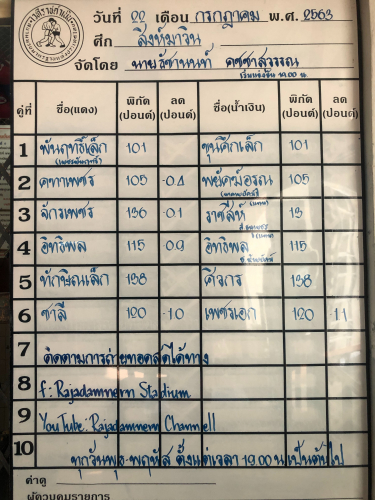 วันที่ 22 เดือน กรกฎาคม พ.ศ. 2563
ศึก สิงห์มาวิน
จัดโดย นายวิชานนท์
เริ่มแข่งขัน 19.00 น.
คู่ที่ ชื่อ(แดง) พิกัด (ปอนด์) ลด (ปอนด์) ชื่อ(น้ำเงิน) พิกัด (ปอนด์) ลด (ปอนด์)
1 พันฤทธิ์เล็ก 101 ขุนศึกเล็ก 101
2 คฑาเพชร 105 -0.4 พยัคฆ์อรุณ 105
3 จักรเพชร 136 -0.1 ราชสีห์ 13
4 อิทธิพล 115 0.9 อิทธิพล 115
5 ทักษิณเล็ก 138 ศิวกร 138
6 ชาลี 120 -1.0 เพชรเอก 120 -1.1
7 ติดตามการถ่ายทอดสดได้ทาง
8 f: Rajadamnern Stadium
9 YouTube: Rajadamnern Channell
10 ทุกวันพุธ-พฤหัส ตั้งแต่เวลา 19.00 น เป็นต้นไป
ค่าดู
ผู้ควบคุมรายการ